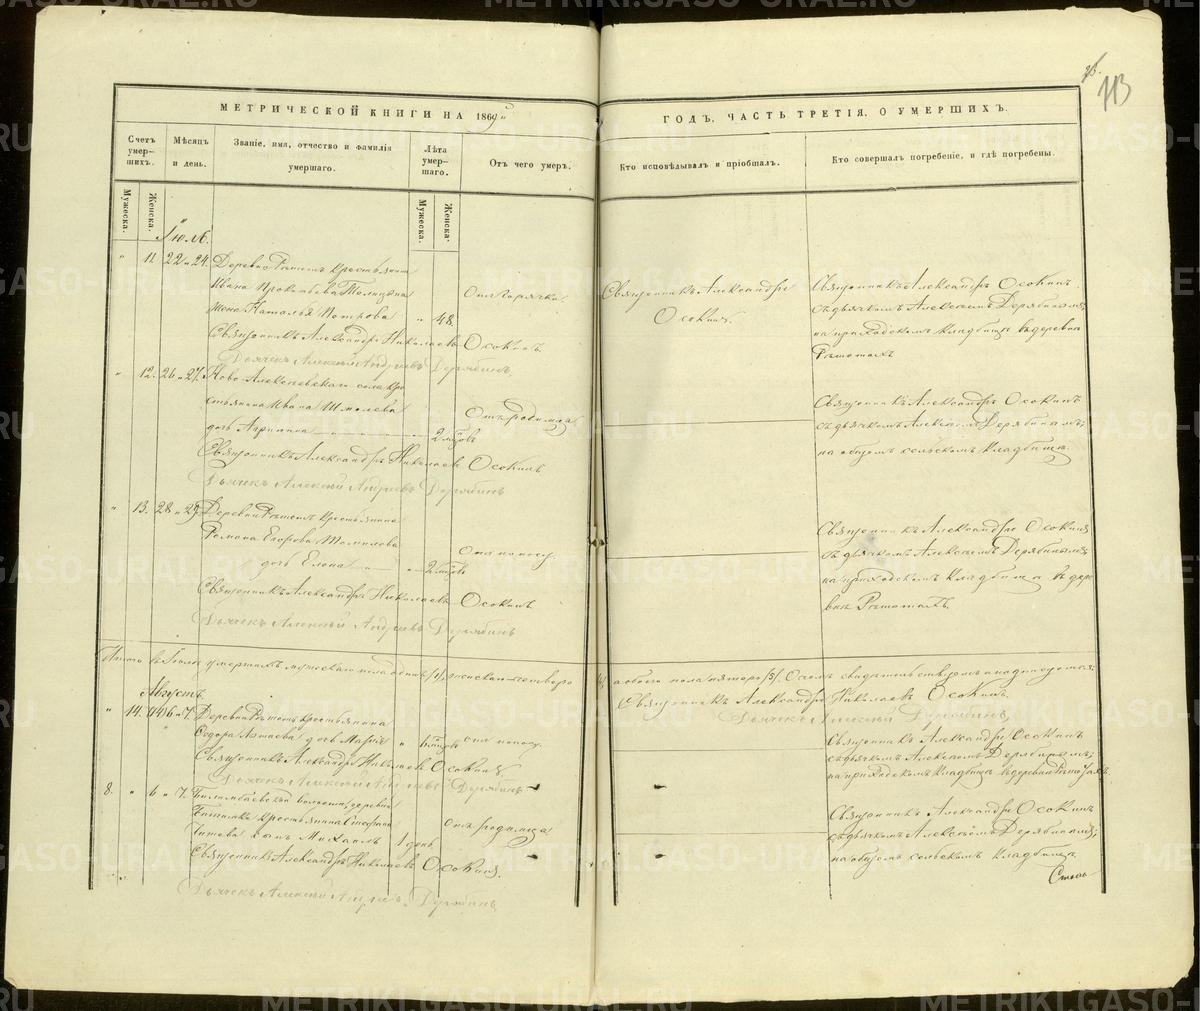 113
МЕТРИЧЕСКОЙ КНИГИ НА 1869й
ГОДЪ, ЧАСТЬ ТРЕТІЯ, О УМЕРШИХЪ.
Счетъ умер-шихъ.
Мѣсяцъ и день.
Званіе, имя, отчество и фамилія умершаго.
Лѣта умер-шаго.
Отъ чего умеръ.
Кто исповѣдывалъ и пріобщалъ.
Кто совершалъ погребеніе, и гдѣ погребены.
Мужеска.
Женска.
Мужеска.
Женска.
Іюль.
11. 22 и 24. Деревни Рѣшетъ крестьянина
Ивана Прокопьева
жена Наталья Петрова " 48.
Отъ горячки.
Священникъ Александръ
Осокинъ.
Священникъ Александръ Осокинъ
съ дьячкомъ Алексѣемъ Дерябинымъ;
на приходскомъ кладбищѣ въ деревни
Рѣшетахъ
Священникъ Александръ Николаевъ Осокинъ.
Дьячекъ Алексѣй Андреевъ Дерябинъ.
12. 26 и 27. Ново-Алексѣевскаго села кре
стьянина Ивана Шмелева
дочь Агрипина 2 мѣсяцовъ
Отъ родимца
Священникъ Александръ Осокинъ
съ дьячкомъ Алексѣемъ Дерябинымъ;
на общемъ сельскомъ кладбищѣ.
Священникъ Александръ Николаевъ Осокинъ
Дьячекъ Алексѣй Андреевъ Дерябинъ
13. 28 и 29. Деревни Рѣшетъ крестьянина
Егорова
дочь Елена 2 мѣсяцовъ
Отъ поносу.
Священникъ Александръ Осокинъ
съ дьячкомъ Алексѣемъ Дерябинымъ;
на приходскомъ кладбищѣ въ дере
вни Рѣшетахъ.
Священникъ Александръ Николаевъ Осокинъ
Дьячекъ Алексѣй Андреевъ Дерябинъ
Итого въ Іюлѣ умершихъ мужескаго пола одинъ /1/, женскаго четверо /4/, а обоего пола пятеро /5/. О семъ свидѣтельствуемъ подписуемся:
Священникъ Александръ Николаевъ Осокинъ.
Дьячекъ Алексѣй Дерябинъ.
Августъ.
14. 6 и 7. Деревни Рѣшетъ крестьянина
дочь Марія " 6 мѣсяцовъ
отъ поносу.
Священникъ Александръ Осокинъ
съ дьячкомъ Алексѣемъ Дерябинымъ;
на приходскомъ кладбищѣ въ деревни Рѣшетахъ.
Священникъ Александръ Николаевъ Осокинъ.
Дьячекъ Алексѣй Андреевъ Дерябинъ
8. " 6 и 7. Билимбаевской волости, деревни
крестьянина Стефана
Титева сынъ Михаилъ 1 день
отъ родимца
Священникъ Александръ Осокинъ
съ дьячкомъ Алексѣемъ Дерябинымъ;
на общемъ сельскомъ кладбищѣ.
Священникъ Александръ Николаевъ Осокинъ.
Дьячекъ Алексѣй Андреевъ Дерябинъ
METRIKI.GASO-URAL.RU